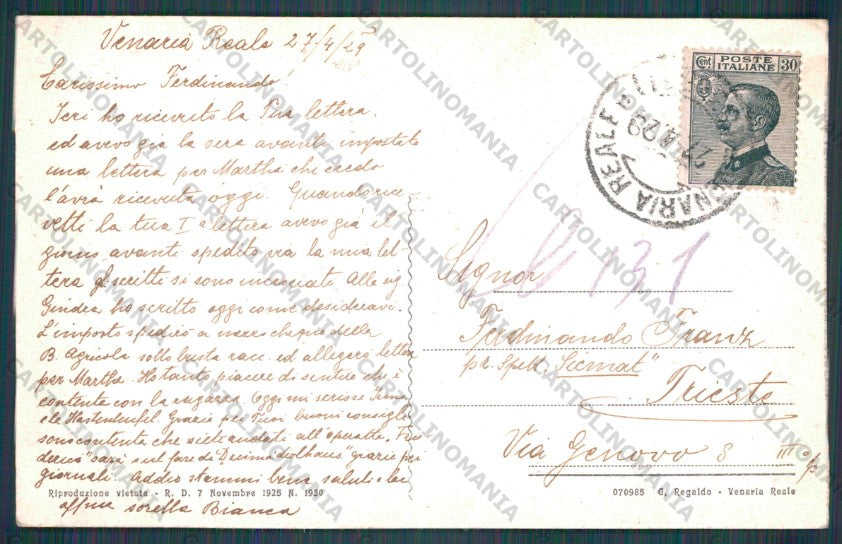 Venaria Reale 27/4/29
Carissimo Ferdinando!
Ieri ho ricevuto la Tua lettera
ed avevo già la sera avanti impostato
una lettera per Martha che credo
l'avrà ricevuta oggi. Quando rice-
vetti la tua I a lettera avevo già il
giorno avanti spedito via la mia let-
tera gli scritti si sono incrociati. Alla
ho scritto oggi come desideravi.
L'importo spedirò a mezzo cheque della
B. Agricola sotto busta racc. ed allegerò lettera
per Martha. Ho tanto piacere di sentire che è
contenta con la ragazza. Oggi mi scrisse
Grazie per Tuoi buoni consigli
sono contenta che siete andati all'operette.
sarà sul fare di grazie pei
giornali. Addio stammi bene saluti e baci
affme sorella Bianca
Riproduzione vietata - R. D. 7 Novembre 1925 N. 1950
POSTE
ITALIANE
Cent 30
VENARIA REALE
27.4.29
131
Signor
Ferdinando Franz
pr. Spett. "Sicmat"
Trieste
Via Genova 8 III
070985 G. Regaldo - Venaria Reale
CARTOLINOMANIA